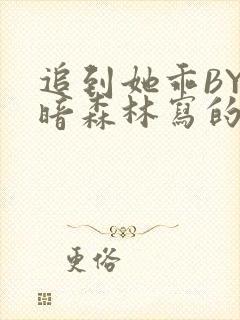 追到她乖BY
暗森林寫的
更俗